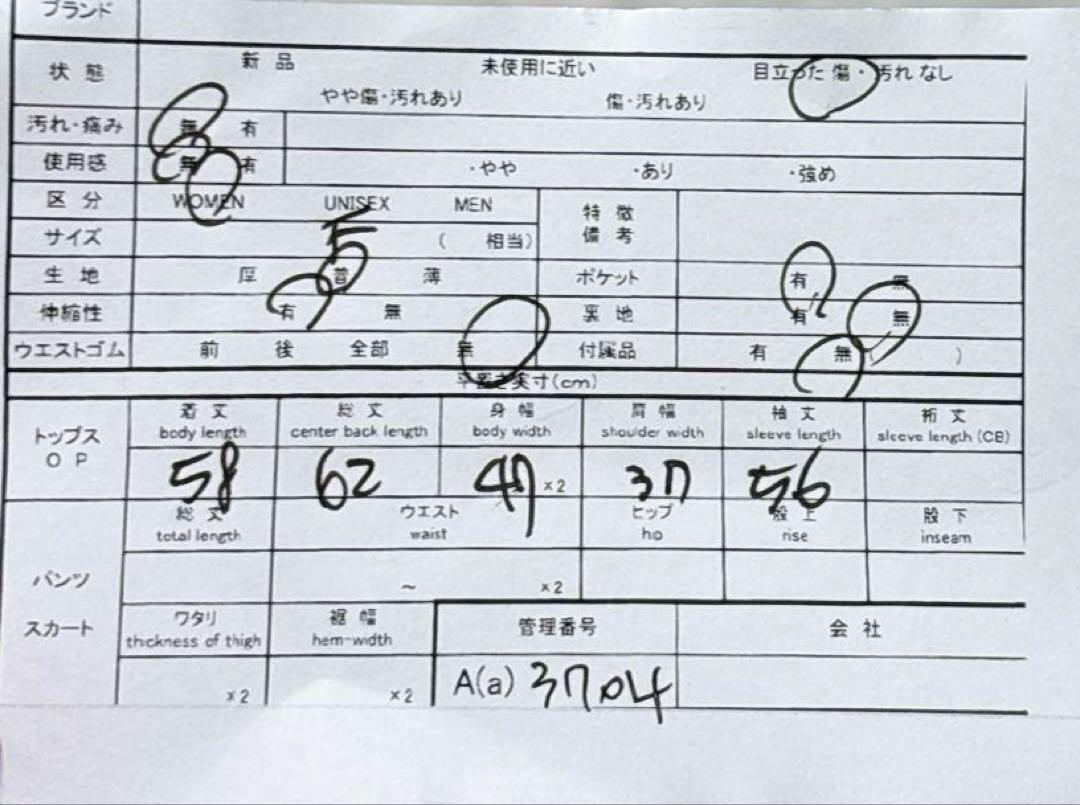 ブランド
状態 新品 未使用に近い 目立った 傷・汚れ なし
やや傷・汚れあり 傷・汚れあり
汚れ・痛み 無 有
使用感 無 有 ・やや ・あり ・強め
区分 WOMEN UNISEX MEN 特徴
備考
サイズ 5 ( 相当)
生地 厚 普 薄 ポケット 有 無
伸縮性 有 無 裏地 有 無
ウエストゴム 前 後 全部 無 付属品 有 無 ( )
平置き実寸(cm)
トップス
OP
着丈 総丈 身幅 肩幅 袖丈 裄丈
body length center back length body width shoulder width sleeve length sleeve length (CB)
58 62 47 ×2 37 56
総丈 ウエスト ヒップ 股上 股下
total length waist hip rise inseam
パンツ ~ ×2
スカート
ワタリ 裾幅 管理番号 会社
thickness of thigh hem-width
×2 ×2 A(a) 3704